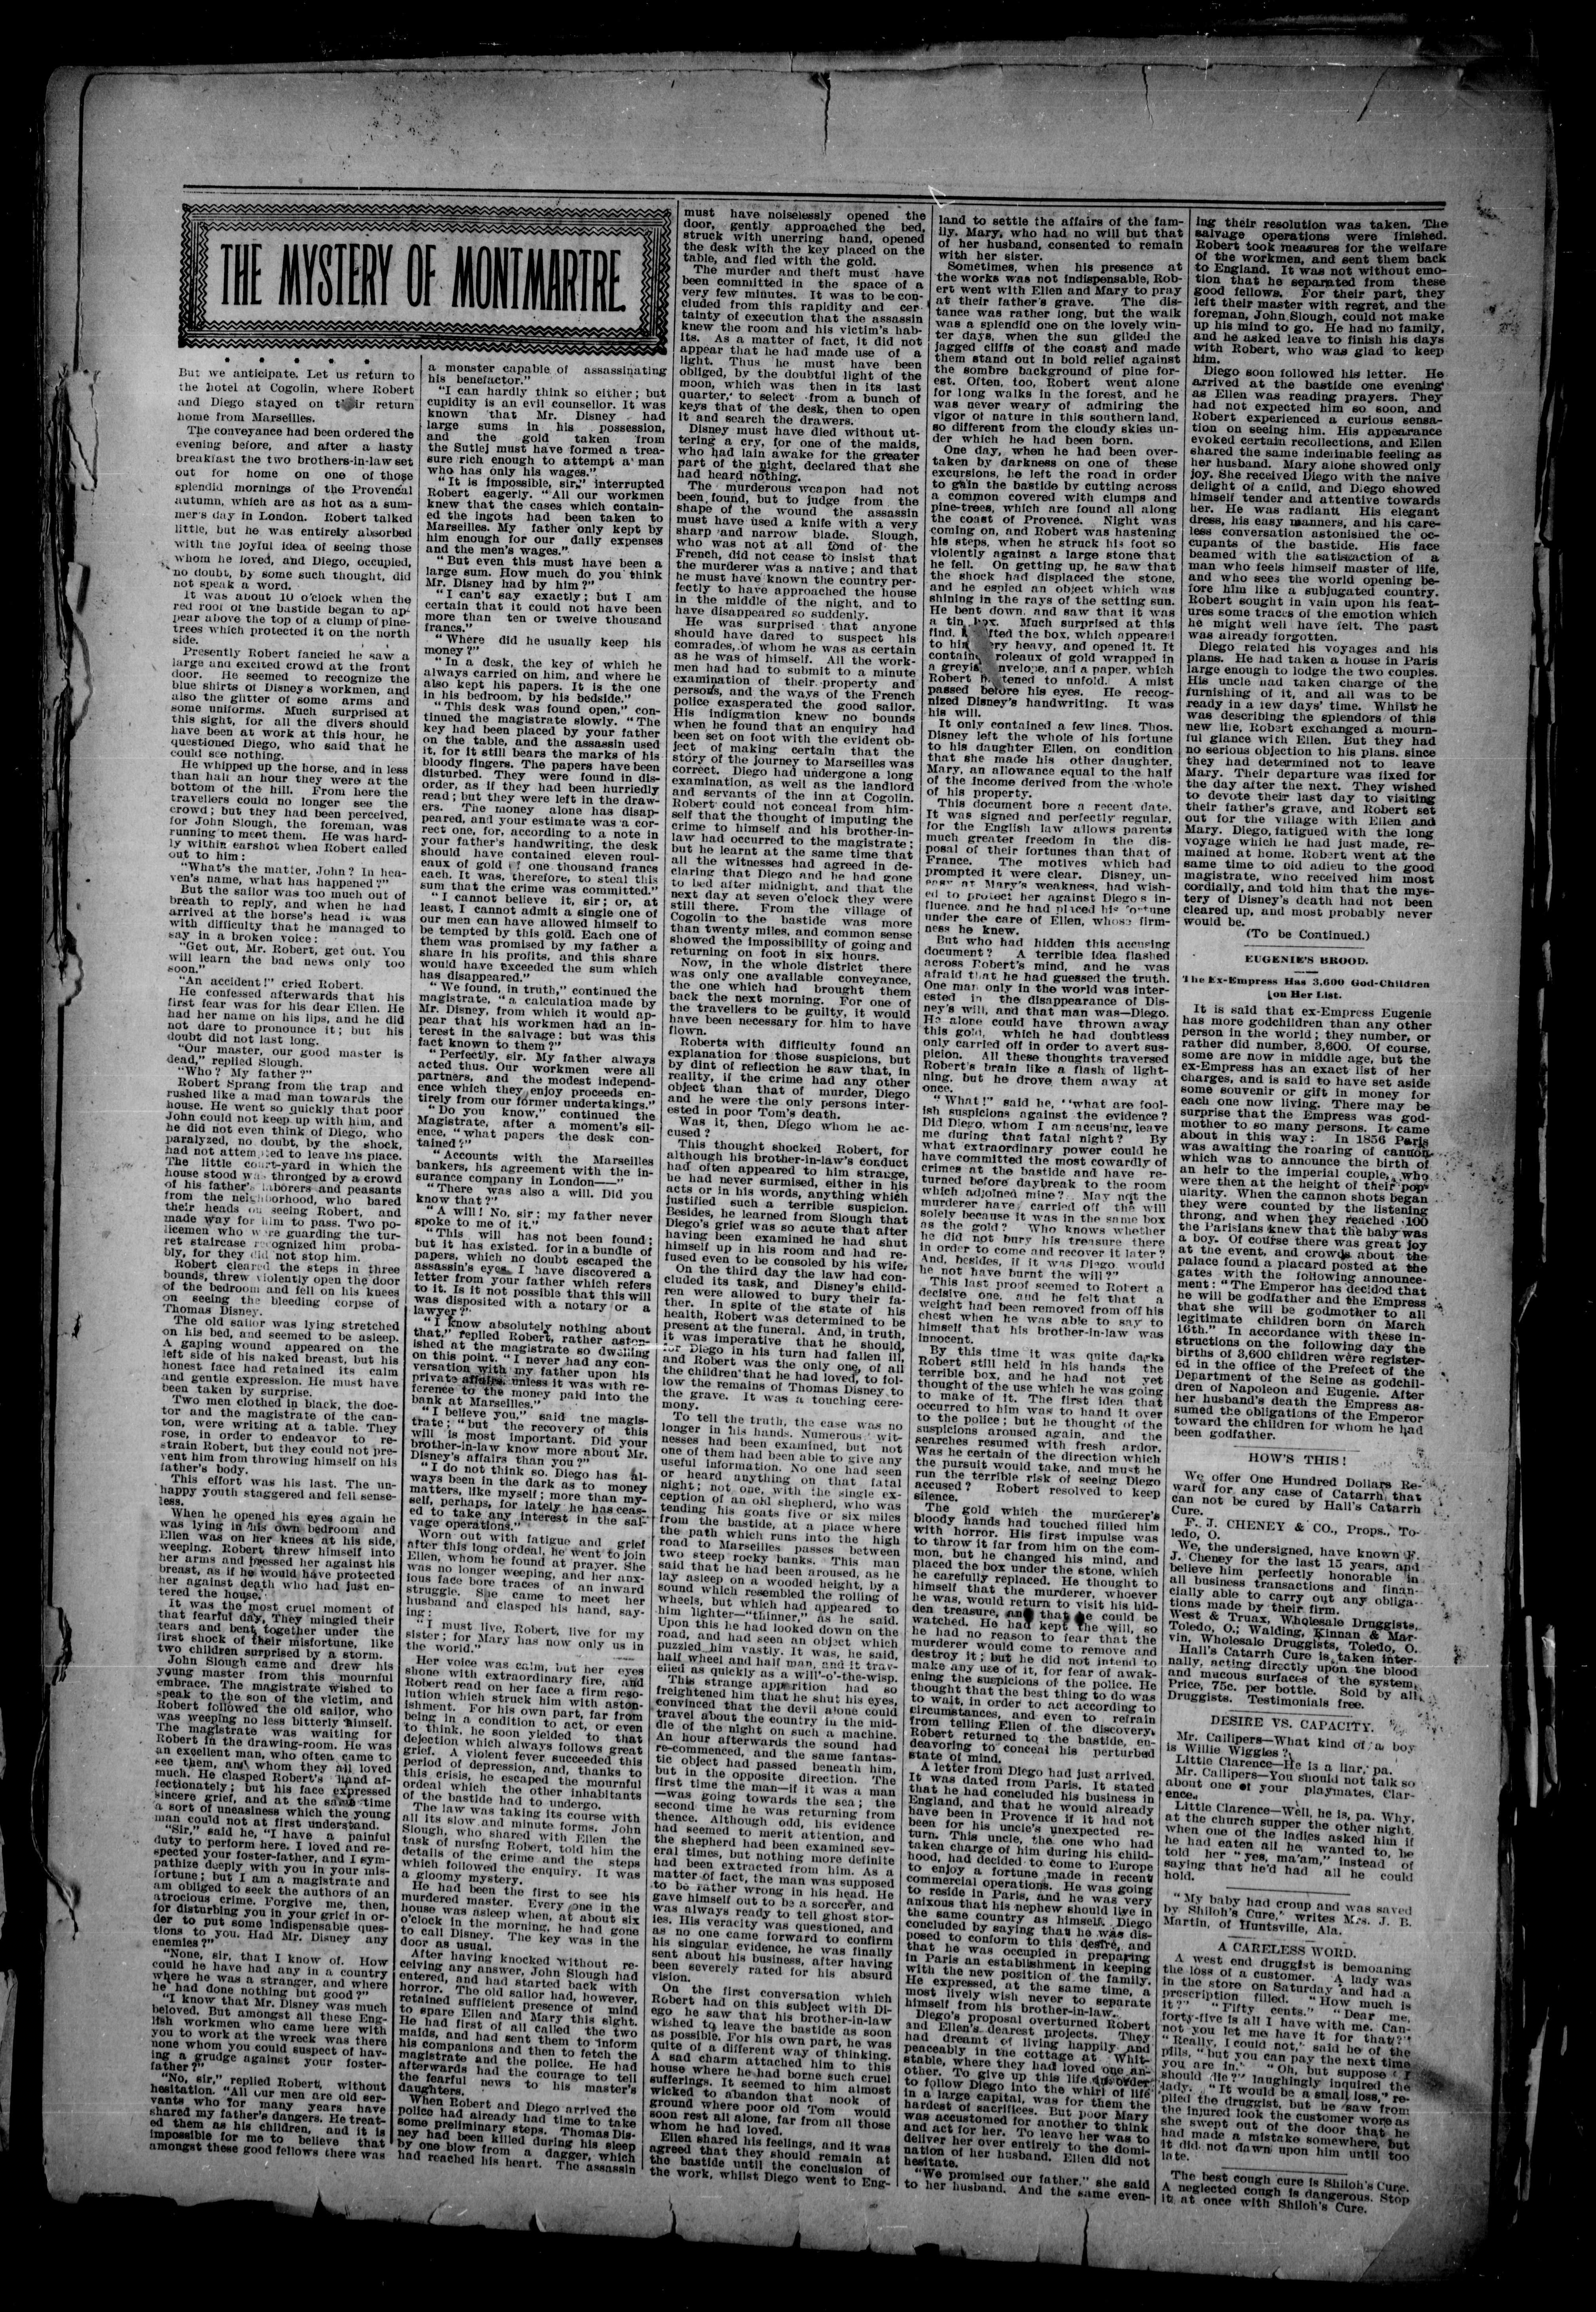 THE MYSTERY OF MONTMARTRE.
But we anticipate. Let us return to
the hotel at Cogolin, where Robert
and Diego stayed on their return
home from Marseilles.
The conveyance had been ordered the
evening before, and after a hasty
breakfast the two brothers-in-law set
out for home on one of those
splendid mornings of the Provencal
autumn, which are as hot as a sum-
mer's day in London. Robert talked
little, but he was entirely absorbed
with the joyful idea of seeing those
whom he loved, and Diego, occupied,
no doubt, by some such thought, did
not speak a word.
It was about 10 o'clock when the
red roof of the bastide began to ap-
pear above the top of a clump of pine-
trees which protected it on the north
side.
Presently Robert fancied he saw a
large and excited crowd at the front
door. He seemed to recognize the
blue shirts of Disney's workmen, and
also the glitter of some arms and
some uniforms. Much surprised at
this sight, for all the divers should
have been at work at this hour, he
questioned Diego, who said that he
could see nothing.
He whipped up the horse, and in less
than half an hour they were at the
bottom of the hill. From here the
travellers could no longer see the
crowd; but they had been perceived,
for John Slough, the foreman, was
running to meet them. He was hard-
ly within earshot when Robert called
out to him:
"What's the matter, John? In hea-
ven's name, what has happened?"
But the sailor was too much out of
breath to reply, and when he had
arrived at the horse's head it was
with difficulty that he managed to
say in a broken voice:
"Get out, Mr. Robert, get out. You
will learn the bad news only too
soon."
"An accident!" cried Robert.
He confessed afterwards that his
first fear was for his dear Ellen. He
had her name on his lips, and he did
not dare to pronounce it; but his
doubt did not last long.
"Our master, our good master is
dead," replied Slough.
"Who? My father?"
Robert Sprang from the trap and
rushed like a mad man towards the
house. He went so quickly that poor
John could not keep up with him, and
he did not even think of Diego, who
paralyzed, no doubt, by the shock,
had not attempted to leave his place.
The little court-yard in which the
house stood was thronged by a crowd
of his father's laborers and peasants
from the neighborhood, who bared
their heads on seeing Robert, and
made way for him to pass. Two po-
licemen who were guarding the tur-
ret staircase recognized him proba-
bly, for they did not stop him.
Robert cleared the steps in three
bounds, threw violently open the door
of the bedroom and fell on his knees
on seeing the bleeding corpse of
Thomas Disney.
The old sailor was lying stretched
on his bed, and seemed to be asleep.
A gaping wound appeared on the
left side of his naked breast, but his
honest face had retained its calm
and gentle expression. He must have
been taken by surprise.
Two men clothed in black, the doc-
tor and the magistrate of the can-
ton, were writing at a table. They
rose, in order to endeavor to re-
strain Robert, but they could not pre-
vent him from throwing himself on his
father's body.
This effort was his last. The un-
happy youth staggered and fell sense-
less.
When he opened his eyes again he
was lying in his own bedroom and
Ellen was on her knees at his side,
weeping. Robert threw himself into
her arms and pressed her against his
breast, as if he would have protected
her against death who had just en-
tered the house.
It was the most cruel moment of
that fearful day. They mingled their
tears and bent together under the
first shock of their misfortune, like
two children surprised by a storm.
John Slough came and drew his
young master from this mournful
embrace. The magistrate wished to
speak to the son of the victim, and
Robert followed the old sailor, who
was weeping no less bitterly himself.
The magistrate was waiting for
Robert in the drawing-room. He was
an exellent man, who often came to
see them, and whom they all loved
much. He clasped Robert's hand af-
fectionately; but his face expressed
sincere grief, and at the same time
a sort of uneasiness which the young
man could not at first understand.
"Sir," said he, "I have a painful
duty to perform here. I loved and re-
spected your foster-father, and I sym-
pathize deeply with you in your mis-
fortune; but I am a magistrate and
am obliged to seek the authors of an
atrocious crime. Forgive me, then,
for disturbing you in your grief in or-
der to put some indispensable ques-
tions to you. Had Mr. Disney any
enemies?"
"None, sir, that I know of. How
could he have had any in a country
where he was a stranger, and where
he had done nothing but good?"
"I know that Mr. Disney was much
beloved. But amongst all these Eng-
lish workmen who came here with
you to work at the wreck was there
none whom you could suspect of hav-
ing a grudge against your foster-
father?"
"No, sir," replied Robert, without
hesitation. "All our men are old ser-
vants who for many years have
shared my father's dangers. He treat-
ed them as his children, and it is
impossible for me to believe that
amongst these good fellows there was
a monster capable of assassinating
his benefactor."
"I can hardly think so either; but
cupidity is an evil counsellor. It was
known that Mr. Disney had
large sums in his possession,
and the gold taken from
the Sutlej must have formed a trea-
sure rich enough to attempt a man
who has only his wages."
"It is impossible, sir," interrupted
Robert eagerly. "All our workmen
knew that the cases which contain-
ed the ingots had been taken to
Marseilles. My father only kept by
him enough for our daily expenses
and the men's wages."
"But even this must have been a
large sum. How much do you think
Mr. Disney had by him?"
"I can't say exactly; but I am
certain that it could not have been
more than ten or twelve thousand
francs."
"Where did he usually keep his
money?"
"In a desk, the key of which he
always carried on him, and where he
also kept his papers. It is the one
in his bedroom, by his bedside."
"This desk was found open," con-
tinued the magistrate slowly. "The
key had been placed by your father
on the table, and the assassin used
it, for it still bears the marks of his
bloody fingers. The papers have been
disturbed. They were found in dis-
order, as if they had been hurriedly
read; but they were left in the draw-
ers. The money alone has disap-
peared, and your estimate was a cor-
rect one, for, according to a note in
your father's handwriting, the desk
should have contained eleven roul-
eaux of gold of one thousand francs
each. It was, therefore, to steal this
sum that the crime was committed."
"I cannot believe it, sir; or, at
least, I cannot admit a single one of
our men can have allowed himself to
be tempted by this gold. Each one of
them was promised by my father a
share in his profits, and this share
would have exceeded the sum which
has disappeared."
"We found, in truth," continued the
magistrate, "a calculation made by
Mr. Disney, from which it would ap-
pear that his workmen had an in-
terest in the salvage: but was this
fact known to them?"
"Perfectly, sir. My father always
acted thus. Our workmen were all
partners, and the modest independ-
ence which they enjoy proceeds en-
tirely from our former undertakings."
"Do you know," continued the
Magistrate, after a moment's sil-
ence, "what papers the desk con-
tained?"
"Accounts with the Marseilles
bankers, his agreement with the in-
surance company in London——"
"There was also a will. Did you
know that?"
"A will! No, sir; my father never
spoke to me of it."
"This will has not been found;
but it has existed, for in a bundle of
papers, which no doubt escaped the
assassin's eyes, I have discovered a
letter from your father which refers
to it. Is it not possible that this will
was disposited with a notary or a
lawyer?"
"I know absolutely nothing about
that," replied Robert, rather aston-
ished at the magistrate so dwelling
on this point. "I never had any con-
versation with my father upon his
private affairs unless it was with re-
ference to the money paid into the
bank at Marseilles."
"I believe you," said the magis-
trate; "but the recovery of this
will is most important. Did your
brother-in-law know more about Mr.
Disney's affairs than you?"
"I do not think so. Diego has al-
ways been in the dark as to money
matters, like myself; more than my-
self, perhaps, for lately he has ceas-
ed to take any interest in the sal-
vage operations."
Worn out with fatigue and grief
after this long ordeal, he went to join
Ellen, whom he found at prayer. She
was no longer weeping, and her anx-
ious face bore traces of an inward
struggle. She came to meet her
husband and clasped his hand, say-
ing:
"I must live, Robert, live for my
sister; for Mary has now only us in
the world."
Her voice was calm, but her eyes
shone with extraordinary fire, and
Robert read on her face a firm reso-
lution which struck him with aston-
ishment. For his own part, far from
being in a condition to act, or even
to think, he soon yielded to that
dejection which always follows great
grief. A violent fever succeeded this
period of depression, and, thanks to
this crisis, he escaped the mournful
ordeal which the other inhabitants
of the bastide had to undergo.
The law was taking its course with
all its slow and minute forms. John
Slough, who shared with Ellen the
task of nursing Robert, told him the
details of the crime and the steps
which followed the enquiry. It was
a gloomy mystery.
He had been the first to see his
murdered master. Every one in the
house was asleep when, at about six
o'clock in the morning, he had gone
to call Disney. The key was in the
door as usual.
After having knocked without re-
ceiving any answer, John Slough had
entered, and had started back with
horror. The old sailor had, however,
retained sufficient presence of mind
to spare Ellen and Mary this sight.
He had first of all called the two
maids, and had sent them to inform
his companions and then to fetch the
magistrate and the police. He had
afterwards had the courage to tell
the fearful news to his master's
daughters.
When Robert and Diego arrived the
police had already had time to take
some preliminary steps. Thomas Dis-
ney had been killed during his sleep
by one blow from a dagger, which
had reached his heart. The assassin
must have noiselessly opened the
door, gently approached the bed,
struck with unerring hand, opened
the desk with the key placed on the
table, and fled with the gold.
The murder and theft must have
been committed in the space of a
very few minutes. It was to be con-
cluded from this rapidity and cer-
tainty of execution that the assassin
knew the room and his victim's hab-
its. As a matter of fact, it did not
appear that he had made use of a
light. Thus he must have been
obliged, by the doubtful light of the
moon, which was then in its last
quarter, to select from a bunch of
keys that of the desk, then to open
it and search the drawers.
Disney must have died without ut-
tering a cry, for one of the maids,
who had lain awake for the greater
part of the night, declared that she
had heard nothing.
The murderous weapon had not
been found, but to judge from the
shape of the wound the assassin
must have used a knife with a very
sharp and narrow blade. Slough,
who was not at all fond of the
French, did not cease to insist that
the murderer was a native; and that
he must have known the country per-
fectly to have approached the house
in the middle of the night, and to
have disappeared so suddenly.
He was surprised that anyone
should have dared to suspect his
comrades, of whom he was as certain
as he was of himself. All the work-
men had had to submit to a minute
examination of their property and
persons, and the ways of the French
police exasperated the good sailor.
His indignation knew no bounds
when he found that an enquiry had
been set on foot with the evident ob-
ject of making certain that the
story of the journey to Marseilles was
correct. Diego had undergone a long
examination, as well as the landlord
and servants of the inn at Cogolin.
Robert could not conceal from him-
self that the thought of imputing the
crime to himself and his brother-in-
law had occurred to the magistrate;
but he learnt at the same time that
all the witnesses had agreed in de-
claring that Diego and he had gone
to bed after midnight, and that the
next day at seven o'clock they were
still there. From the village of
Cogolin to the bastide was more
than twenty miles, and common sense
showed the impossibility of going and
returning on foot in six hours.
Now, in the whole district there
was only one available conveyance,
the one which had brought them
back the next morning. For one of
the travellers to be guilty, it would
have been necessary for him to have
flown.
Roberts with difficulty found an
explanation for those suspicions, but
by dint of reflection he saw that, in
reality, if the crime had any other
object than that of murder, Diego
and he were the only persons inter-
ested in poor Tom's death.
Was it, then, Diego whom he ac-
cused?
This thought shocked Robert, for
although his brother-in-law's conduct
had often appeared to him strange,
he had never surmised, either in his
acts or in his words, anything which
justified such a terrible suspicion.
Besides, he learned from Slough that
Diego's grief was so acute that after
having been examined he had shut
himself up in his room and had re-
fused even to be consoled by his wife.
On the third day the law had con-
cluded its task, and Disney's child-
ren were allowed to bury their fa-
ther. In spite of the state of his
health, Robert was determined to be
present at the funeral. And, in truth,
it was imperative that he should,
for Diego in his turn had fallen ill,
and Robert was the only one, of all
the children that he had loved, to fol-
low the remains of Thomas Disney to
the grave. It was a touching cere-
mony.
To tell the truth, the case was no
longer in his hands. Numerous wit-
nesses had been examined, but not
one of them had been able to give any
useful information. No one had seen
or heard anything on that fatal
night; not one, with the single ex-
ception of an old shepherd, who was
tending his goats five or six miles
from the bastide, at a place where
the path which runs into the high
road to Marseilles passes between
two steep rocky banks. This man
said that he had been aroused, as he
lay asleep on a wooded height, by a
sound which resembled the rolling of
wheels, but which had appeared to
him lighter—"thinner," as he said.
Upon this he had looked down on the
road, and had seen an object which
puzzled him vastly. It was, he said,
half wheel and half man, and it trav-
elled as quickly as a will-'o'-the-wisp.
This strange apparition had so
freightened him that he shut his eyes,
convinced that the devil alone could
travel about the country in the mid-
dle of the night on such a machine.
An hour afterwards the sound had
re-commenced, and the same fantas-
tic object had passed beneath him,
but in the opposite direction. The
first time the man—if it was a man
—was going towards the sea; the
second time he was returning from
thence. Although odd, his evidence
had seemed to merit attention, and
the shepherd had been examined sev-
eral times, but nothing more definite
had been extracted from him. As a
matter of fact, the man was supposed
to be rather wrong in his head. He
gave himself out to be a sorcerer, and
was always ready to tell ghost stor-
ies. His veracity was questioned, and
as no one came forward to confirm
his singular evidence, he was finally
sent about his business, after having
been severely rated for his absurd
vision.
On the first conversation which
Robert had on this subject with Di-
ego he saw that his brother-in-law
wished to leave the bastide as soon
as possible. For his own part, he was
quite of a different way of thinking.
A sad charm attached him to this
house where he had borne such cruel
sufferings. It seemed to him almost
wicked to abandon that nook of
ground where poor old Tom would
soon rest all alone, far from all those
whom he had loved.
Ellen shared his feelings, and it was
agreed that they should remain at
the bastide until the conclusion of
the work, whilst Diego went to Eng-
land to settle the affairs of the fam-
ily. Mary, who had no will but that
of her husband, consented to remain
with her sister.
Sometimes, when his presence at
the works was not indispensable, Rob-
ert went with Ellen and Mary to pray
at their father's grave. The dis-
tance was rather long, but the walk
was a splendid one on the lovely win-
ter days, when the sun gilded the
jagged cliffs of the coast and made
them stand out in bold relief against
the sombre background of pine for-
est. Often, too, Robert went alone
for long walks in the forest, and he
was never weary of admiring the
vigor of nature in this southern land,
so different from the cloudy skies un-
der which he had been born.
One day, when he had been over-
taken by darkness on one of these
excursions, he left the road in order
to gain the bastide by cutting across
a common covered with clumps and
pine-trees, which are found all along
the coast of Provence. Night was
coming on, and Robert was hastening
his steps, when he struck his foot so
violently against a large stone that
he fell. On getting up, he saw that
the shock had displaced the stone,
and he espied an object which was
shining in the rays of the setting sun.
He bent down, and saw that it was
a tin box. Much surprised at this
find, fted the box, which appeared
to him ry heavy, and opened it. It
contain roleaux of gold wrapped in
a greyis nvelope, and a paper, which
Robert h tened to unfold. A mist
passed before his eyes. He recog-
nized Disney's handwriting. It was
his will.
It only contained a few lines. Thos.
Disney left the whole of his fortune
to his daughter Ellen, on condition
that she made his other daughter,
Mary, an allowance equal to the half
of the income derived from the whole
of his property.
This document bore a recent date.
It was signed and perfectly regular,
for the English law allows parents
much greater freedom in the dis-
posal of their fortunes than that of
France. The motives which had
prompted it were clear. Disney, un-
easy at Mary's weakness, had wish-
ed to protect her against Diego's in-
fluence, and he had placed his fortune
under the care of Ellen, whose firm-
ness he knew.
But who had hidden this accusing
document? A terrible idea flashed
across Robert's mind, and he was
afraid that he had guessed the truth.
One man only in the world was inter-
ested in the disappearance of Dis-
ney's will, and that man was—Diego.
He alone could have thrown away
this gold, which he had doubtless
only carried off in order to avert sus-
picion. All these thoughts traversed
Robert's brain like a flash of light-
ning, but he drove them away at
once.
"What!" said he, "what are fool-
ish suspicions against the evidence?
Did Diego, whom I am accusing, leave
me during that fatal night? By
what extraordinary power could he
have committed the most cowardly of
crimes at the bastide and have re-
turned before daybreak to the room
which adjoined mine? May not the
murderer have carried off the will
solely because it was in the same box
as the gold? Who knows whether
he did not bury his treasure there
in order to come and recover it later?
And, besides, if it was Diego would
he not have burnt the will?"
This last proof seemed to Robert a
decisive one, and he felt that a
weight had been removed from off his
chest when he was able to say to
himself that his brother-in-law was
innocent.
By this time it was quite dark.
Robert still held in his hands the
terrible box, and he had not yet
thought of the use which he was going
to make of it. The first idea that
occurred to him was to hand it over
to the police; but he thought of the
suspicions aroused again, and the
searches resumed with fresh ardor.
Was he certain of the direction which
the pursuit would take, and must he
run the terrible risk of seeing Diego
accused? Robert resolved to keep
silence.
The gold which the murderer's
bloody hands had touched filled him
with horror. His first impulse was
to throw it far from him on the com-
mon, but he changed his mind, and
placed the box under the stone, which
he carefully replaced. He thought to
himself that the murderer, whoever
he was, would return to visit his hid-
den treasure, and that he could be
watched. He had kept the will, so
he had no reason to fear that the
murderer would come to remove and
destroy it; but he did not intend to
make any use of it, for fear of awak-
ening the suspicions of the police. He
thought that the best thing to do was
to wait, in order to act according to
circumstances, and even to refrain
from telling Ellen of the discovery.
Robert returned to the bastide, en-
deavoring to conceal his perturbed
state of mind.
A letter from Diego had just arrived.
It was dated from Paris. It stated
that he had concluded his business in
England, and that he would already
have been in Provence if it had not
been for his uncle's unexpected re-
turn. This uncle, the one who had
taken charge of him during his child-
hood, had decided to come to Europe
to enjoy a fortune made in recent
commercial operations. He was going
to reside in Paris, and he was very
anixous that his nephew should live in
the same country as himself. Diego
concluded by saying that he was dis-
posed to conform to this desire, and
that he was occupied in preparing
in Paris an establishment in keeping
with the new position of the family.
He expressed, at the same time, a
most lively wish never to separate
himself from his brother-in-law.
Diego's proposal overturned Robert
and Ellen's dearest projects. They
had dreamt of living happily and
peaceably in the cottage at Whit-
stable, where they had loved one an-
other. To give up this life in order
to follow Diego into the whirl of life
in a large capital, was for them the
hardest of sacrifices. But poor Mary
was accustomed for another to think
and act for her. To leave her was to
deliver her over entirely to the domi-
nation of her husband. Ellen did not
hesitate.
"We promised our father," she said
to her husband. And the same even-
ing their resolution was taken. The
salvage operations were finished.
Robert took measures for the welfare
of the workmen, and sent them back
to England. It was not without emo-
tion that he separated from these
good fellows. For their part, they
left their master with regret, and the
foreman, John Slough, could not make
up his mind to go. He had no family,
and he asked leave to finish his days
with Robert, who was glad to keep
him.
Diego soon followed his letter. He
arrived at the bastide one evening
as Ellen was reading prayers. They
had not expected him so soon, and
Robert experienced a curious sensa-
tion on seeing him. His appearance
evoked certain recollections, and Ellen
shared the same indefinable feeling as
her husband. Mary alone showed only
joy. She received Diego with the naive
delight of a child, and Diego showed
himself tender and attentive towards
her. He was radiant. His elegant
dress, his easy manners, and his care-
less conversation astonished the oc-
cupants of the bastide. His face
beamed with the satisfaction of a
man who feels himself master of life,
and who sees the world opening be-
fore him like a subjugated country.
Robert sought in vain upon his feat-
ures some traces of the emotion which
he might well have felt. The past
was already forgotten.
Diego related his voyages and his
plans. He had taken a house in Paris
large enough to lodge the two couples.
His uncle had taken charge of the
furnishing of it, and all was to be
ready in a few days' time. Whilst he
was describing the splendors of this
new life, Robert exchanged a mourn-
ful glance with Ellen. But they had
no serious objection to his plans, since
they had determined not to leave
Mary. Their departure was fixed for
the day after the next. They wished
to devote their last day to visiting
their father's grave, and Robert set
out for the village with Ellen and
Mary. Diego, fatigued with the long
voyage which he had just made, re-
mained at home. Robert went at the
same time to bid adieu to the good
magistrate, who received him most
cordially, and told him that the mys-
tery of Disney's death had not been
cleared up, and most probably never
would be.
(To be Continued.)
EUGENIE'S BROOD.
The Ex-Empress Has 3,600 God-Children
on Her List.
It is said that ex-Empress Eugenie
has more godchildren than any other
person in the world; they number, or
rather did number, 3,600. Of course,
some are now in middle age, but the
ex-Empress has an exact list of her
charges, and is said to have set aside
some souvenir or gift in money for
each one now living. There may be
surprise that the Empress was god-
mother to so many persons. It came
about in this way: In 1856 Paris
was awaiting the roaring of cannon
which was to announce the birth of
an heir to the imperial couple, who
were then at the height of their pop-
ularity. When the cannon shots began
they were counted by the listening
throng, and when they reached 100
the Parisians knew that the baby was
a boy. Of course there was great joy
at the event, and crowds about the
palace found a placard posted at the
gates with the following announce-
ment: "The Emperor has decided that
he will be godfather and the Empress
that she will be godmother to all
legitimate children born on March
16th." In accordance with these in-
structions on the following day the
births of 3,600 children were register-
ed in the office of the Prefect of the
Department of the Seine as godchil-
dren of Napoleon and Eugenie. After
her husband's death the Empress as-
sumed the obligations of the Emperor
toward the children for whom he had
been godfather.
HOW'S THIS!
We offer One Hundred Dollars Re-
ward for any case of Catarrh that
can not be cured by Hall's Catarrh
Cure.
F. J. CHENEY & CO., Props., To-
ledo, O.
We, the undersigned, have known F.
J. Cheney for the last 15 years, and
believe him perfectly honorable in
all business transactions and finan-
cially able to carry out any obliga-
tions made by their firm.
West & Truax, Wholesale Druggists,
Toledo, O.; Walding, Kinnan & Mar-
vin, Wholesale Druggists, Toledo, O.
Hall's Catarrh Cure is taken inter-
nally, acting directly upon the blood
and mucous surfaces of the system.
Price, 75c. per bottle. Sold by all
Druggists. Testimonials free.
DESIRE VS. CAPACITY.
Mr. Callipers—What kind of a boy
is Willie Wiggles?
Little Clarence—He is a liar, pa.
Mr. Callipers—You should not talk so
about one of your playmates, Clar-
ence.
Little Clarence—Well, he is, pa. Why,
at the church supper the other night,
when one of the ladies asked him if
he had eaten all he wanted to, he
told her "yes, ma'am," instead of
saying that he'd had all he could
hold.
"My baby had croup and was saved
by Shiloh's Cure," writes Mrs. J. B.
Martin, of Huntsville, Ala.
A CARELESS WORD.
A west end druggist is bemoaning
the loss of a customer. A lady was
in the store on Saturday and had a
prescription filled. "How much is
it?" "Fifty cents." "Dear me,
forty-five is all I have with me. Can-
not you let me have it for that?"
"Really, I could not," said he of the
pills, "but you can pay the next time
you are in." "Oh, but suppose I
should die?" laughingly inquired the
lady. "It would be a small loss," re-
plied the druggist, but he saw from
the injured look the customer wore as
she swept out of the door that he
had made a mistake somewhere, but
it did not dawn upon him until too
late.
The best cough cure is Shiloh's Cure.
A neglected cough is dangerous. Stop
it at once with Shiloh's Cure.